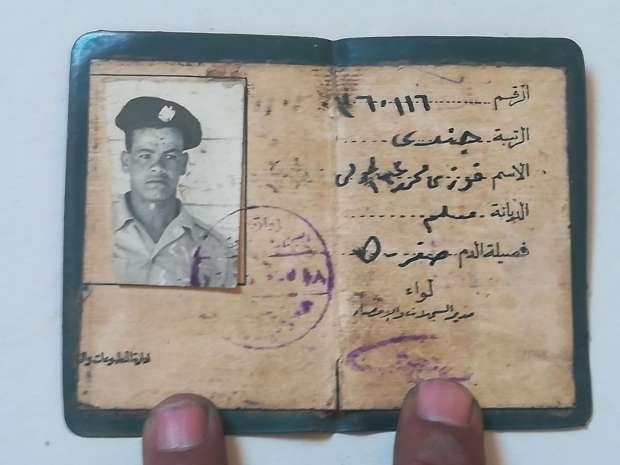 الرقم ........ ٧٦٠١١٦
الرتبة جندى
الاسم فوزى محمد
الديانة مسلم
فصيلة الدم صفر - O
لواء
مدير السجلات والإحصاء
إدارة المطبوعات